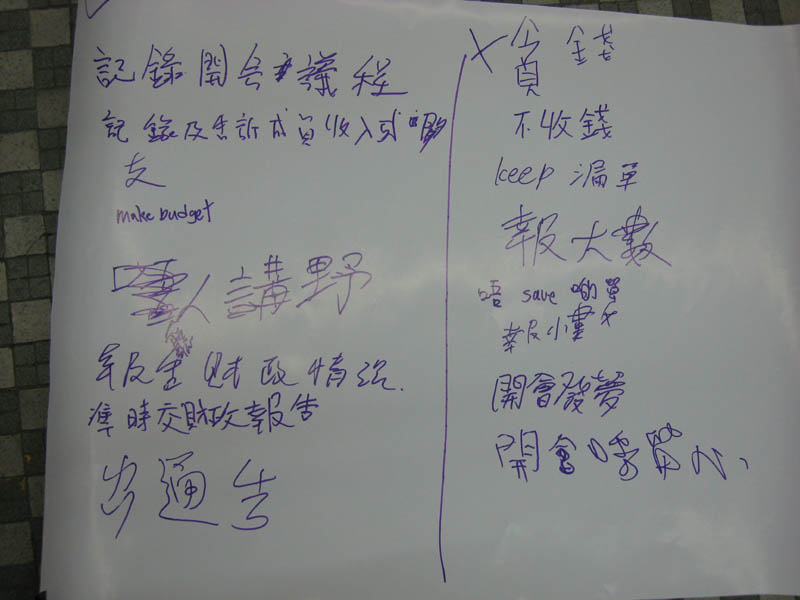 記錄開会議程
記錄及告訴成員收入或
支
make budget
人講野
報告財政情況.
準時交財政報告
出通告
X 貪錢
不收錢
keep 漏單
報大數
唔 save 啲單
報小數
開會發夢
開會唔帶心、